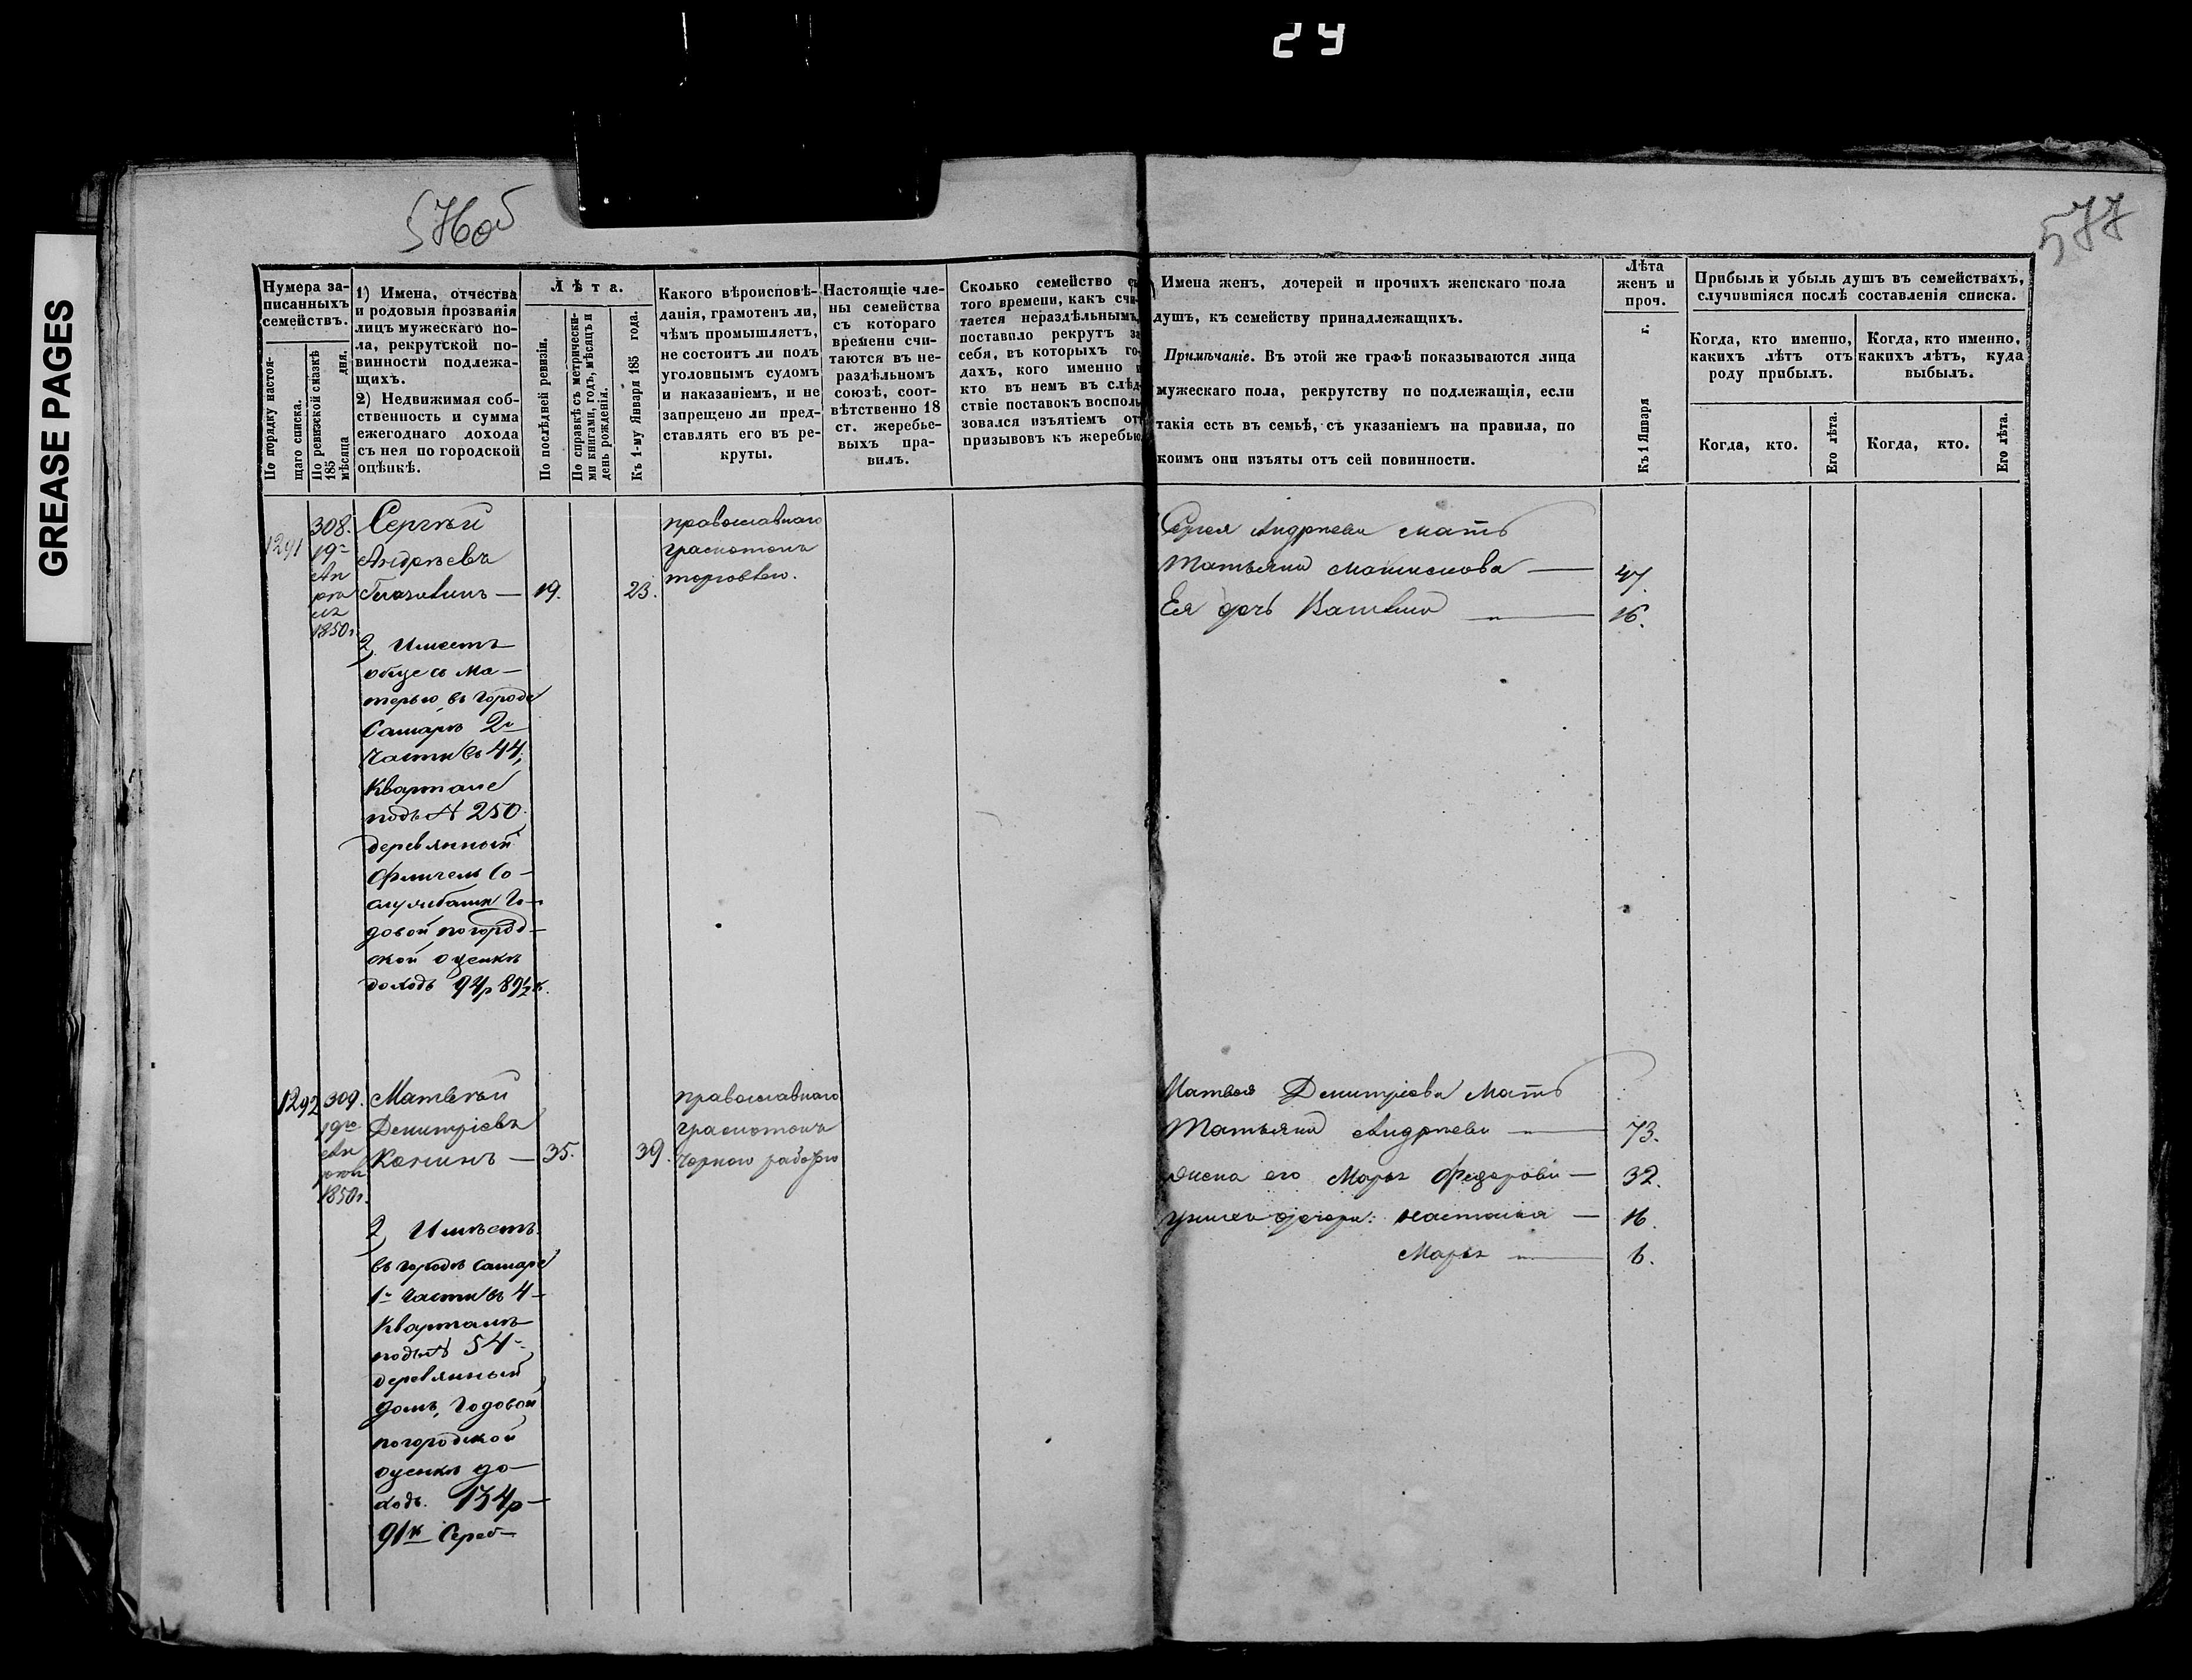 29
GREASE PAGES
576об
577
Нумера за-
писанныхъ
семействъ.
По порядку настоя-
щаго списка.
По ревизской сказкѣ
185
мѣсяца дня.
1) Имена, отчества
и родовыя прозванія
лицъ мужескаго по-
ла, рекрутской по-
винности подлежа-
щихъ.
2) Недвижимая соб-
ственность и сумма
ежегоднаго дохода
съ нея по городской
оцѣнкѣ.
Лѣта.
По послѣдней ревизіи.
По справкѣ съ метрически-
ми книгами, годъ, мѣсяцъ и
день рожденія.
Къ 1-му Января 185 года.
Какого вѣроисповѣ-
данія, грамотенъ ли,
чѣмъ промышляетъ,
не состоитъ ли подъ
уголовнымъ судомъ
и наказаніемъ, и не
запрещено ли пред-
ставлять его въ ре-
круты.
Настоящіе чле-
ны семейства
съ котораго
времени счи-
таются въ не-
раздѣльномъ
союзѣ, соот-
вѣтственно 18
ст. жеребье-
выхъ пра-
вилъ.
Сколько семейство съ
того времени, какъ счи-
тается нераздѣльнымъ,
поставило рекрутъ за
себя, въ которыхъ го-
дахъ, кого именно и
кто въ немъ въ слѣд-
ствіе поставокъ восполь-
зовался изъятіемъ отъ
призывовъ къ жеребью
Имена женъ, дочерей и прочихъ женскаго пола
душъ, къ семейству принадлежащихъ.
Примѣчаніе. Въ этой же графѣ показываются лица
мужескаго пола, рекрутству не подлежащія, если
такія есть въ семьѣ, съ указаніемъ на правила, по
коимъ они изъяты отъ сей повинности.
Лѣта
женъ и
проч.
Къ 1 Января г.
Прибыль и убыль душъ въ семействахъ,
случившіяся послѣ составленія списка.
Когда, кто именно,
какихъ лѣтъ отъ
роду прибылъ.
Когда, кто именно,
какихъ лѣтъ, куда
выбылъ.
Когда, кто.
Его лѣта.
Когда, кто.
Его лѣта.
1291
308.
19го
Ап
рѣ
ля
1850г.
Сергѣй
Андрѣевъ
19.
23.
православнаго
грамотенъ
торговлею.
2, Имеетъ
обще съ Ма-
терью въ городе
Самарѣ 2й
Части въ 44,
Квартале
подъ № 250
деревянный
Флигель со
службами Го-
довой погород-
ской оценкѣ
доходъ 94р 89½к.
Сергея Андрѣева мать
Татьяна
47.
Ея дочь
16.
1292
309.
19го
Ап
рѣля
1850г.
Матвѣй
Демитріевъ
35.
39.
православнаго
грамотенъ
Чорною работою
2, Имѣетъ
въ городѣ самаре
1й части въ 4
Кварталѣ
подъ № 54
деревянный
Домъ, Годовой
погородской
оценкѣ до-
ходъ. 134р
91к Сереб
Матвея Демитріева Мать
Татьяна Андрѣева
73.
жена его Марья Федорова
32.
у нихъ дочери: настасья
16.
Марья
6.